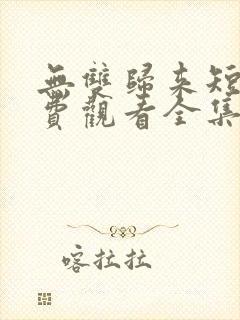 無雙歸來短
費觀看全集
喀拉拉